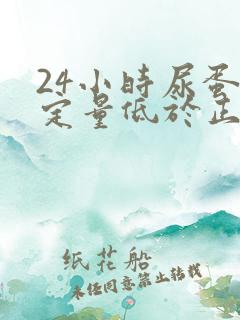 24小時尿蛋
定量低於正
纸花船
未经同意禁止转载